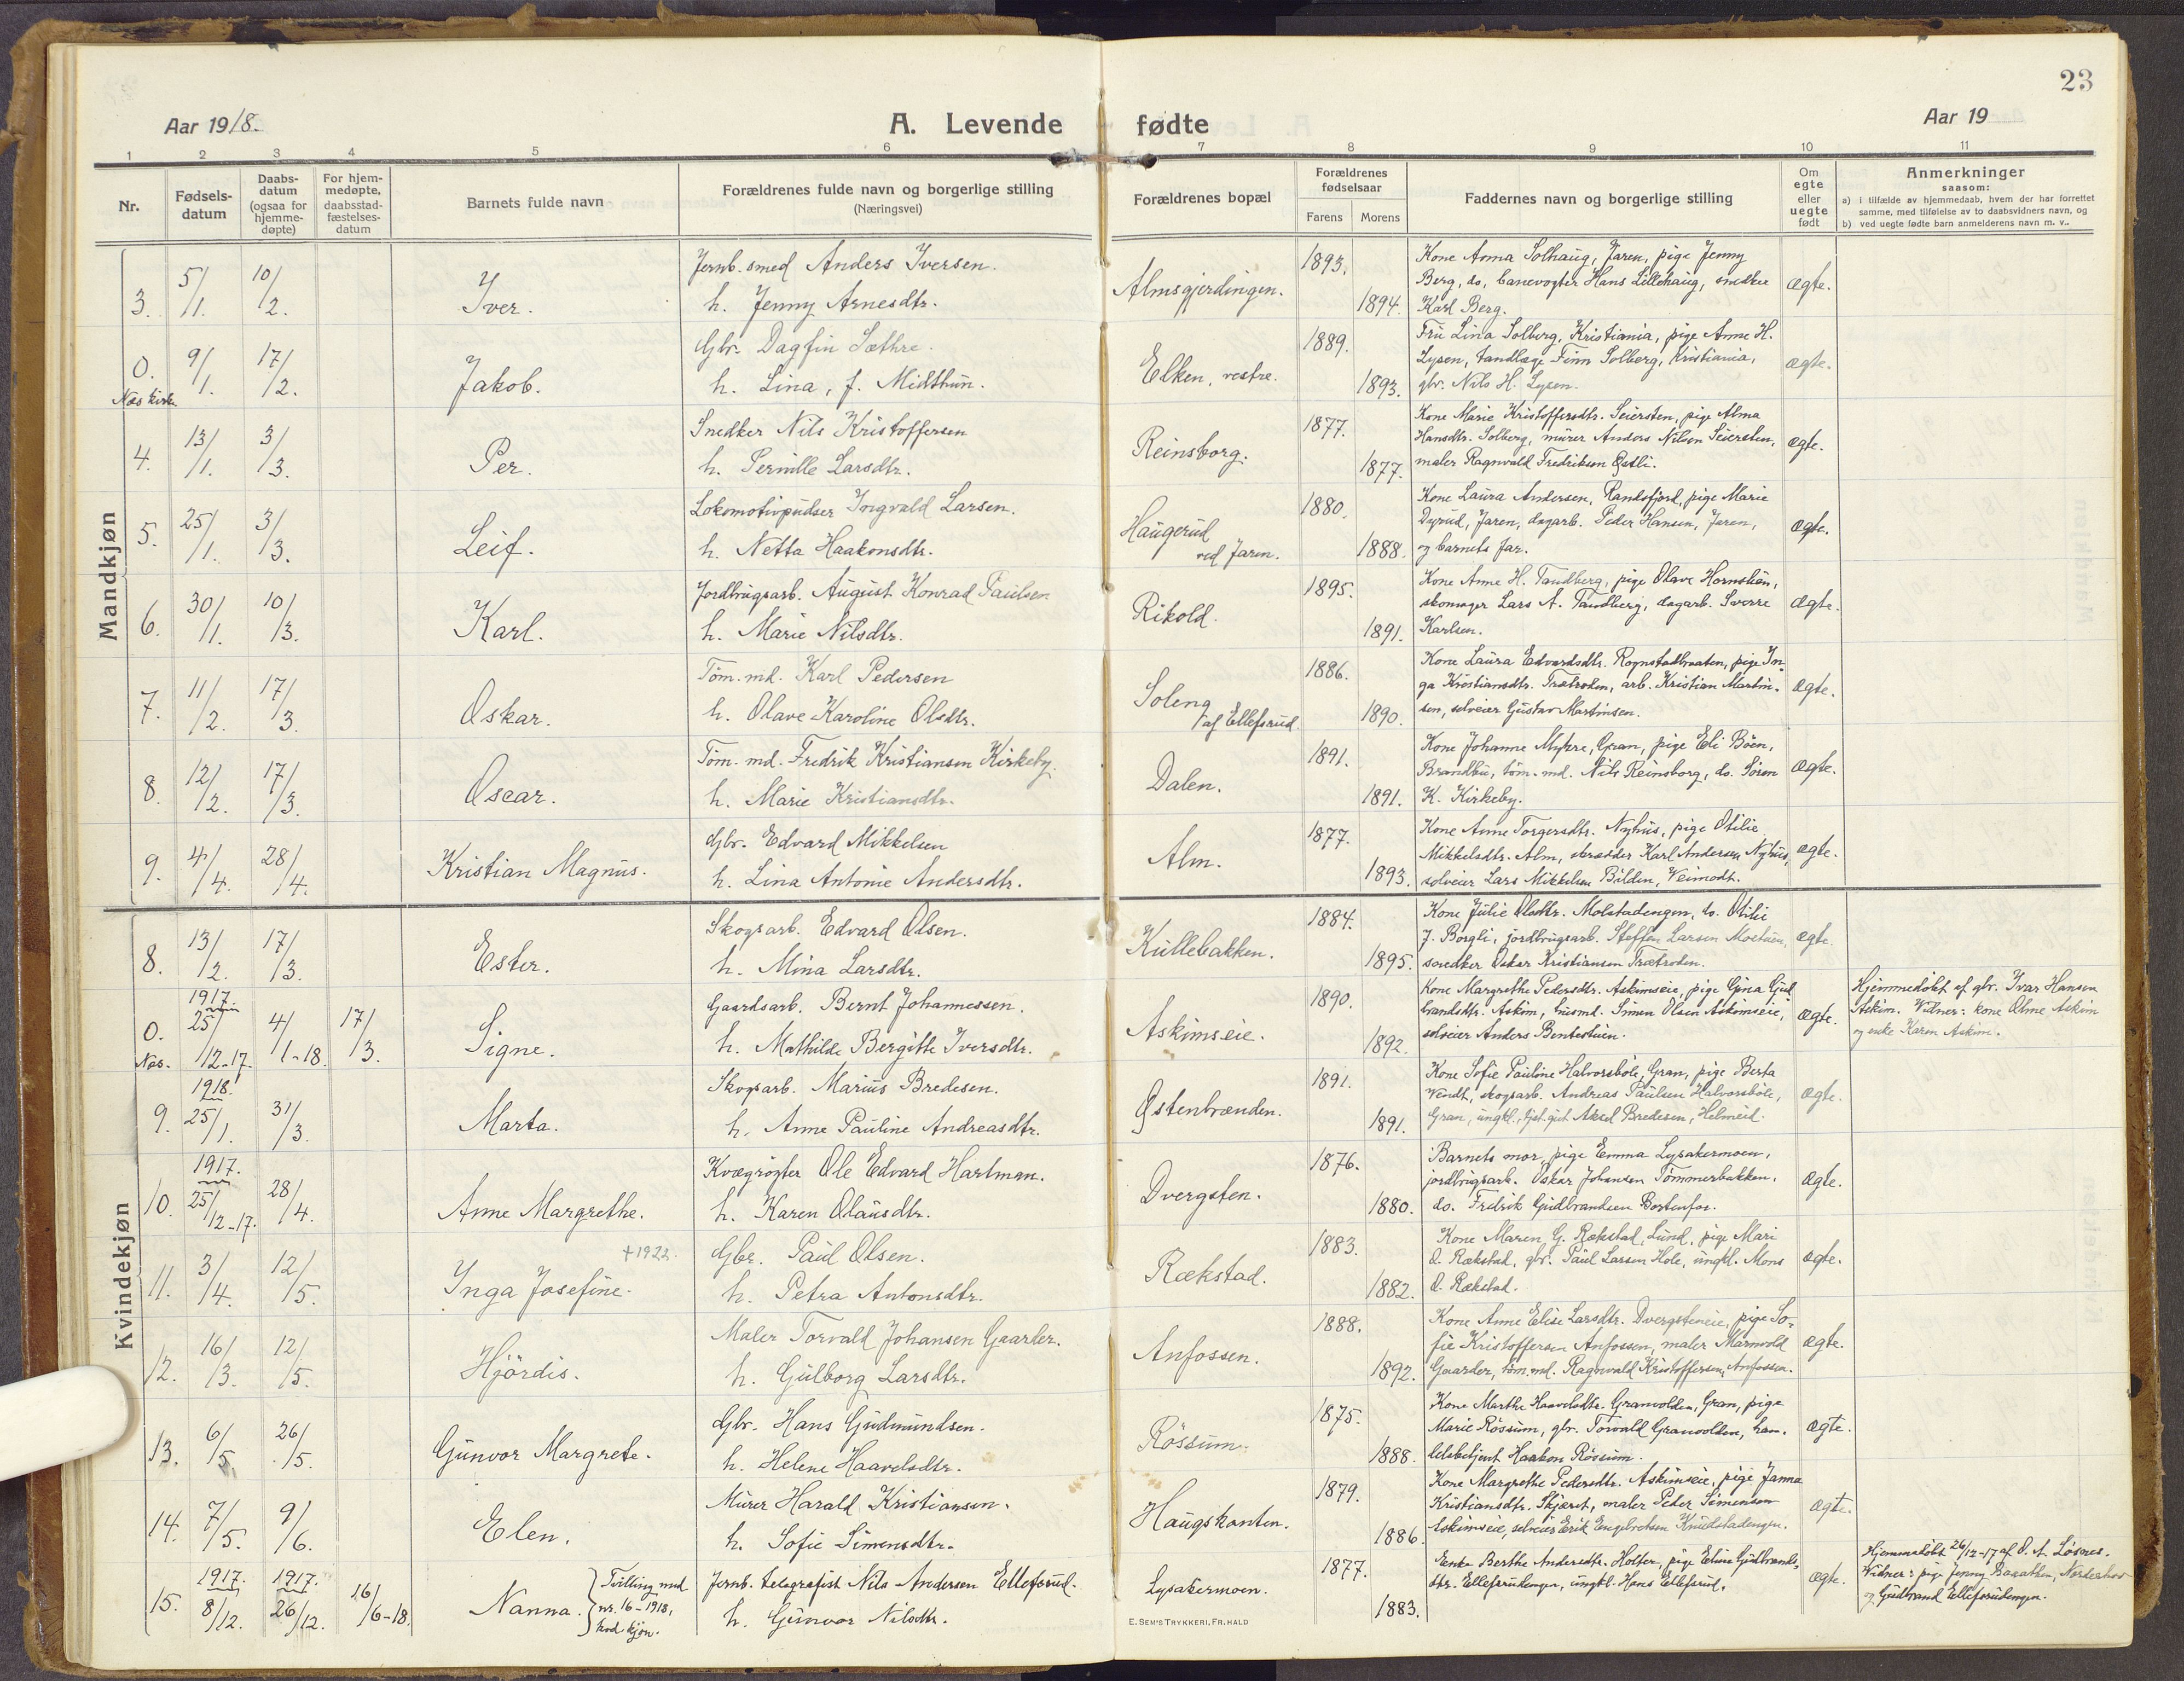 23
Aar 1918.
A. Levende fødte
Aar 19
1 2 3 4 5 6 7 8 9 10 11
Nr.
Fødsels-
datum
Daabs-
datum
(ogsaa for
hjemme-
døpte)
For hjem-
medøpte,
daabsstad-
fæstelses-
datum
Barnets fulde navn
Forældrenes fulde navn og borgerlige stilling
(Næringsvei)
Forældrenes bopæl
Forældrenes
fødselsaar
Farens Morens
Faddernes navn og borgerlige stilling
Om
egte
eller
uegte
født
Anmerkninger
saasom:
a) i tilfælde av hjemmedaab, hvem der har forrettet
samme, med tilføielse av to daabsvidners navn, og
b) ved uegte fødte barn anmelderens navn m. v..
Mandkjøn
3. 5/1. 10/2. Iver.
Jernb. smed Anders Iversen.
h. Jenny Arnesdtr.
Almsgjerdingen. 1893. 1894.
Kone Anna Solhaug, Jaren, pige Jenny
Berg, do, banevogter Hans Lillehaug, snedker
Karl Berg.
ægte.
0. Næs kirke 9/1. 17/2. Jakob.
Gbr. Dagfin Sæthre.
h. Lina, f. Midthun.
Elken, vestre. 1889. 1893.
Fru Lina Solberg, Kristiania, pige Anne H.
Lysen, tandlæge Finn Solberg, Kristiania,
gbr. Nils H. Lysen.
ægte.
4. 13/1. 3/3. Per.
Snedker Nils Kristoffersen
h. Pernille Larsdtr.
Reinsborg. 1877. 1877.
Kone Marie Kristoffersdtr. Seiersten, pige Alma
Hansdtr. Solberg, murer Anders Nilsen Seiersten,
maler Ragnvald Fredriksen Østli.
ægte.
5. 25/1. 3/3. Leif.
Lokomotivpudser Ingvald Larsen.
h. Netta Haakonsdtr.
Haugerud
ved Jaren. 1880. 1888.
Kone Laura Andersen, Randsfjord, pige Marie
Dyrud, Jaren, dagarb. Peder Hansen, Jaren,
og barnets far.
ægte.
6. 30/1. 10/3. Karl.
Jordbrugsarb. August Konrad Paulsen
h. Marie Nilsdtr.
Rikold. 1895. 1891.
Kone Anne H. Tandberg, pige Olave Hornslien,
skomager Lars A. Tandberg, dagarb. Sverre
Karlsen.
ægte.
7. 11/2. 17/3. Oskar.
Tøm. md. Karl Pedersen
h. Olave Karoline Olsdtr.
Soleng
af Ellefsrud 1886. 1890.
Kone Laura Edvardsdtr. Rognstadbraaten, pige In-
ga Kristiansdtr. Trætroden, arb. Kristian Martin-
sen, selveier Gustav Martinsen.
ægte.
8. 12/2. 17/3. Oscar.
Tøm. md. Fredrik Kristiansen Kirkeby.
h. Marie Kristiansdtr.
Dalen. 1891. 1891.
Kone Johanne Myhre, Gran, pige Eli Böen,
Brandbu, töm. md. Nils Reinsborg, do. Sören
K. Kirkeby.
ægte.
9. 4/4. 28/4. Kristian Magnus.
Gbr. Edvard Mikkelsen
h. Lina Antonie Andersdtr.
Alm. 1877. 1893.
Kone Anne Torgersdtr. Nyhus, pige Otilie
Mikkelsdtr. Alm, skrædder Karl Andersen Nyhus,
selveier Lars Mikkelsen Bilden, Veimodt.
ægte.
Kvindekjøn
8. 13/2. 17/3. Ester.
Skogsarb. Edvard Olsen.
h. Mina Larsdtr.
Kullebakken. 1884. 1895.
Kone Julie Olsdtr. Molstadengen, do. Otilie
J. Borgli, jordbrugsarb. Steffen Larsen Moetuen,
snedker Oskar Kristiansen Trætroden.
ægte.
0. Næs. 1917. 25/12-17. 4/1-18. 17/3. Signe.
Gaardsarb. Bernt Johannessen.
h. Mathilde Bergitte Iversdtr.
Askimseie. 1890. 1892.
Kone Margrethe Pedersdtr. Askimseie, pige Gina Gud
brandsdtr. Askim, husmd. Simen Olsen Askimseie,
selveier Anders Bentestuen.
ægte.
Hjemmedöbt af gbr. Ivar Hansen
Askim. Vidner: kone Olme Askim
og enke Karen Askim.
9. 1918. 25/1. 31/3. Marta.
Skogsarb. Marius Bredesen.
h. Anne Pauline Andreasdtr.
Østenbrænden. 1891. 1891.
Kone Sofie Pauline Halvorsböle, Gran, pige Berta
Wendt, skogsarb. Andreas Paulsen Halvorsböle,
Gran, ungkl. tjst.gut Aksel Bredesen, Helmeid.
ægte.
10. 1917. 25/12-17. 28/4. Anne Margrethe.
Kvægrögter Ole Edvard Hartman.
h. Karen Olausdtr.
Dvergsten. 1876. 1880.
Barnets mor, pige Emma Lysakermoen,
jordbrugsarb. Oskar Johansen Tömmerbakken,
do. Fredrik Gudbrandsen
ægte.
11. 3/4. 12/5. Inga Josefine. +1922.
Gbr. Paul Olsen.
h. Petra Antonsdtr.
Rækstad. 1883. 1882.
Kone Maren G. Rækstad, Lund, pige Mari
O. Rækstad, gbr. Paul Larsen Hole, ungkl. Mons
O. Rækstad.
ægte.
12. 16/3. 12/5. Hjördis.
Maler Torvald Johansen Gaarder.
h. Gulborg Larsdtr.
Anfossen. 1888. 1892.
Kone Anne Elise Larsdtr. Dvergsteneie, pige So-
fie Kristoffersen Anfossen, maler
Gaarder, töm. md. Ragnvald Kristoffersen, Anfossen.
ægte.
13. 6/5. 26/5. Gunvor Margrete.
Gbr. Hans Gudmundsen.
h. Helene Haavelsdtr.
Rössum. 1875. 1888.
Kone Marthe Haavelsdtr. Granvolden, Gran, pige
Marie Rössum, gbr. Torvald Granvolden, han-
delsbetjent Haakon Rössum.
ægte.
14. 7/5. 9/6. Elen.
Murer Harald Kristiansen.
h. Sofie Simensdtr.
Haugskanten. 1879. 1886.
Kone Margrethe Pedersdtr. Askimseie, pige Janna
Kristiansdtr. Skjæret, maler Peder Simensen
Askimseie, selveier Erik Engebretsen Knudstadengen.
ægte.
15. 1917. 8/12. 1917. 26/12. 16/6-18. Nanna.
Tvilling med
nr. 16-1918,
hvd kjøn.
Jernb. telegrafist Nils Andersen Ellefsrud.
h. Gunvor Nilsdtr.
Lysakermoen. 1877. 1883.
Enke Berthe Andersdtr. Holter, pige Eline Gudbrands-
dtr. Ellefsrudengen, ungkl. Hans Ellefsrud.
ægte.
Hjemmedöbt 26/12-17 af O. A. Løsnes.
Vidner: pige Jenny Norderhov
og Gudbrand Ellefsrudengen.
E. SEM'S TRYKKERI, FR.HALD